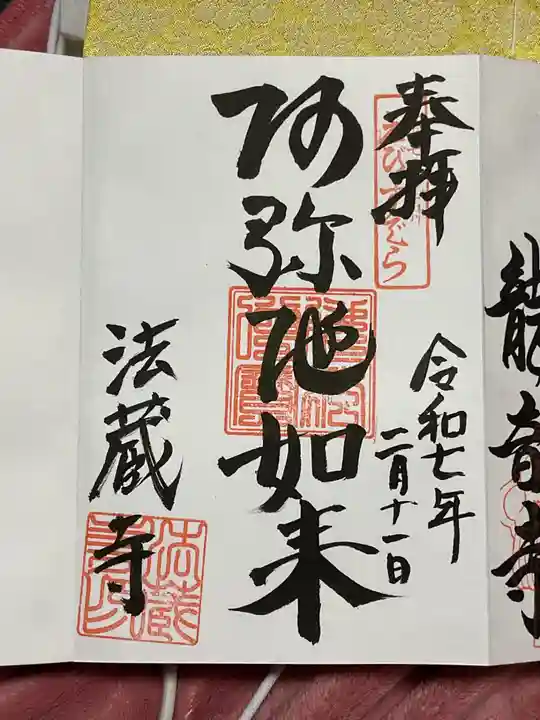 龍音寺
奉拝
令和七年
二月十一日
阿弥陀如来
法蔵寺